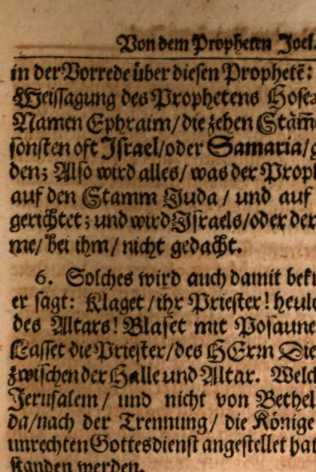 Von dem Propheten Joel.
in der Vorrede über diesen Prophetē:
Weissagung des Prophetens Hosea
Namen Ephraim/ die zehen Stäm̄
sonsten oft Israel/ oder Samaria/ g
den; Also wird alles/ was der Proph
auf den Stamm Juda/ und auf
gerichtet; und wird Israels/ oder der
me/ bei ihm/ nicht gedacht.
6. Solches wird auch damit bekr
er sagt: Klaget/ ihr Priester! heul
des Altars! Blaset mit Posaune
Lasset die Priester/ des HErrn Die
zwischen der Halle und Altar. Welc
Jerusalem/ und nicht von Bethel
da/ nach der Trennung/ die Könige
unrechten Gottesdienst angestellet hat
standen werden.